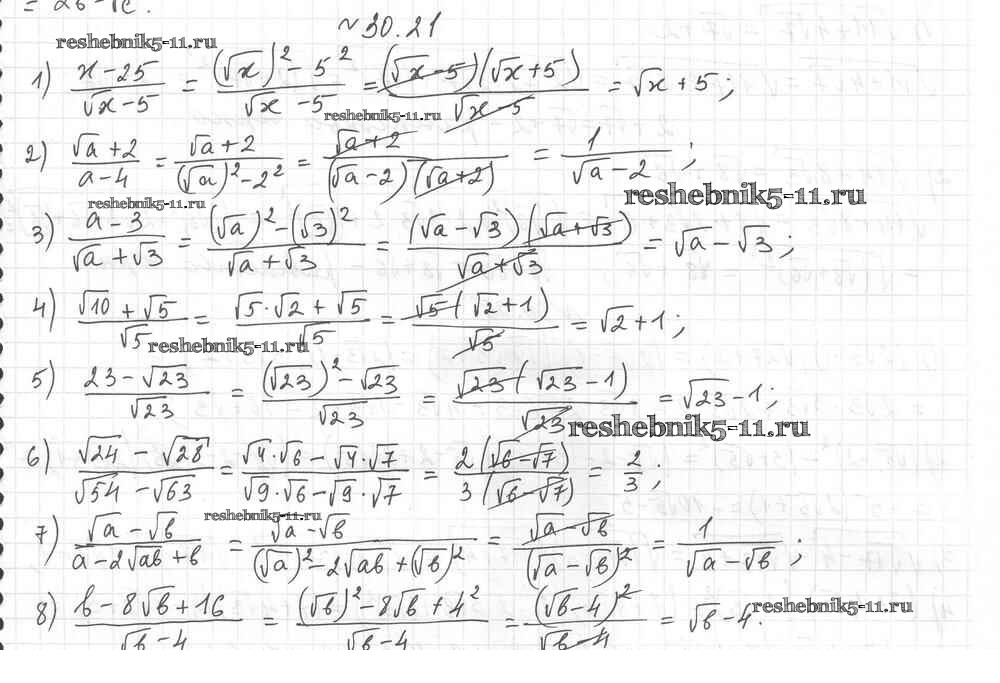 = 2b - √c.
№30.21
reshebnik5-11.ru
1) (x-25)/(√x-5) = ((√x)²-5²)/(√x-5) = ((√x-5)(√x+5))/(√x-5) = √x+5;
reshebnik5-11.ru
2) (√a+2)/(a-4) = (√a+2)/((√a)²-2²) = (√a+2)/((√a-2)(√a+2)) = 1/(√a-2);
reshebnik5-11.ru
reshebnik5-11.ru
3) (a-3)/(√a+√3) = ((√a)²-(√3)²)/(√a+√3) = ((√a-√3)(√a+√3))/(√a+√3) = √a-√3;
4) (√10+√5)/√5 = (√5·√2+√5)/√5 = (√5(√2+1))/√5 = √2+1;
reshebnik5-11.ru
5) (23-√23)/√23 = ((√23)²-√23)/√23 = (√23(√23-1))/√23 = √23-1;
reshebnik5-11.ru
6) (√24-√28)/(√54-√63) = (√4·√6-√4·√7)/(√9·√6-√9·√7) = (2(√6-√7))/(3(√6-√7)) = 2/3;
reshebnik5-11.ru
7) (√a-√b)/(a-2√ab+b) = (√a-√b)/((√a)²-2√ab+(√b)²) = (√a-√b)/((√a-√b)²) = 1/(√a-√b);
8) (b-8√b+16)/(√b-4) = ((√b)²-8√b+4²)/(√b-4) = ((√b-4)²)/(√b-4) = √b-4.
reshebnik5-11.ru